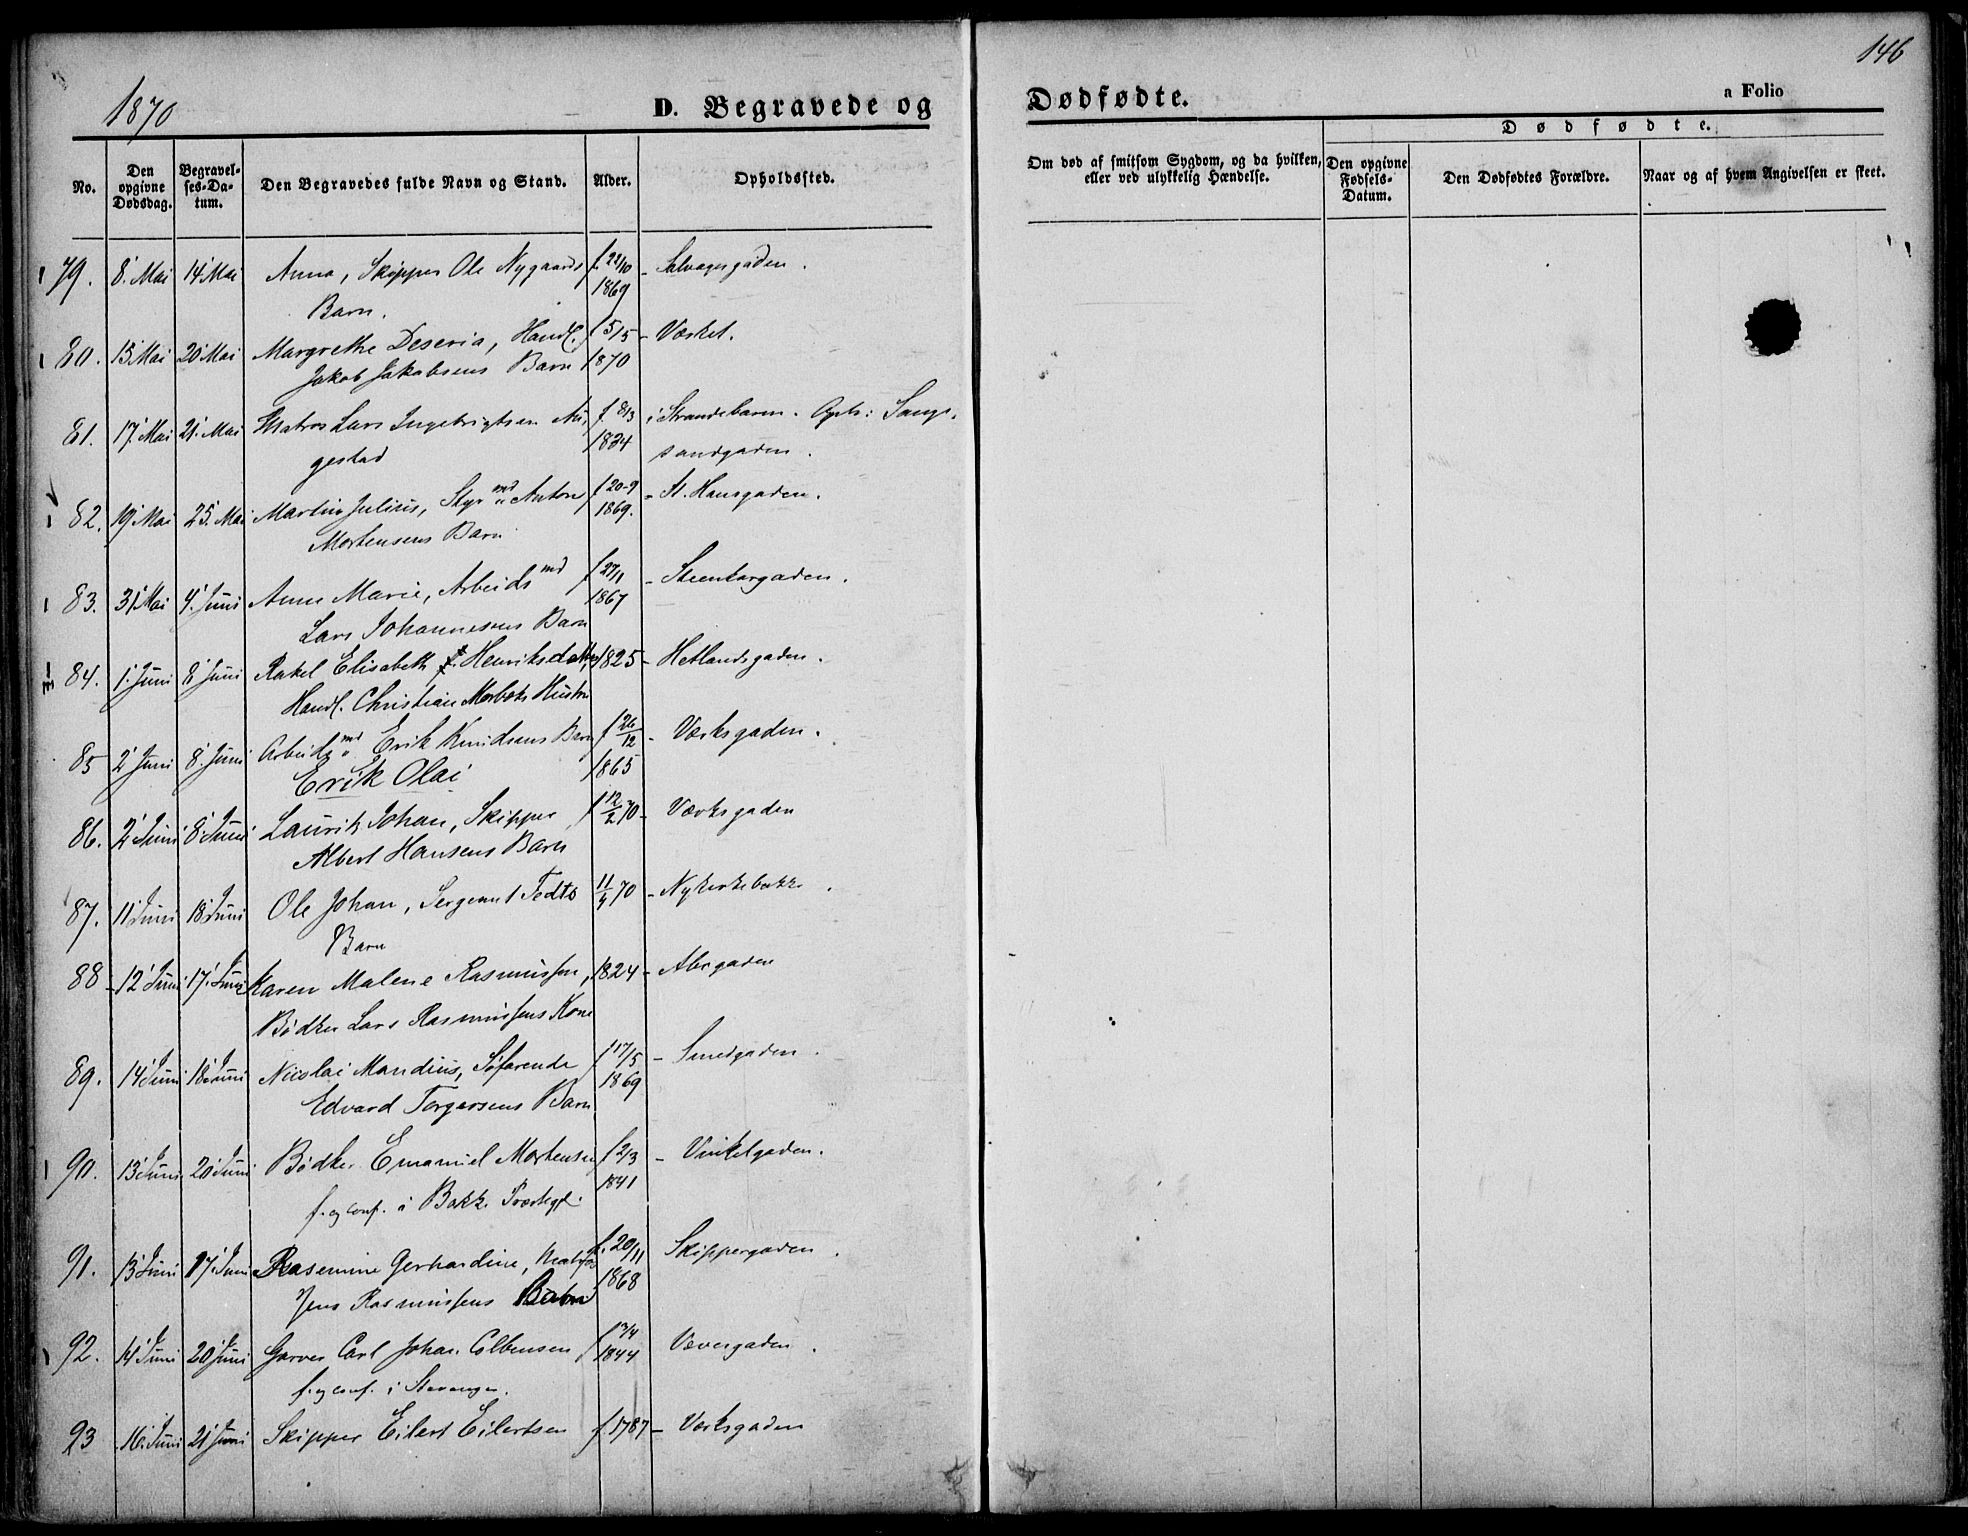 146
1870
D. Begravede og Dødfødte.
a Folio
Dødfødte.
No.
Den opgivne Dødsdag.
Begravelses-Datum.
Den Begravedes fulde Navn og Stand.
Alder.
Opholdssted.
Om død af smitsom Sygdom, og da hvilken, eller ved ulykkelig Hændelse.
Den opgivne Fødsels-Datum.
Den Dødfødtes Forældre.
Naar og af hvem Angivelsen er skeet.
79. 8' Mai 14' Mai Anna, Skipper Ole Nygaards f. 22/10 - Salvagergaden.
Barn. 1869
80. 15' Mai 20' Mai Margrethe Deseria, Handl. f 5/5 - Værket.
Jakob Jakobsens Barn 1870
81. 17' Mai 21' Mai Matros Lars Ingebrigtsen f. 8/3 i Strandebarm. Oph:
gestad 1834 sandgaden.
82. 19' Mai 25. Mai Martin Julius, Styrmd Anton f 20-9 - St. Hansgaden.
Mortensens Barn 1869.
83. 31' Mai 4' Juni Anne Marie, Arbeidsmd f 27/1 - Steenkargaden.
Lars Johannesens Barn 1867
84. 1' Juni 8' Juni Rakel Elisabeth Henriksdatter, 1825 - Hetlandsgaden.
Handl. Christian Hustru
85 2' Juni 8' Juni Arbeidsmd Erik Knudsens Barn f 26/12 - Værksgaden.
Erik Olai 1865
86. 2' Juni 8' Juni Lauritz Johan, Skipper f 12/2 70 - Værksgaden
Albert Hansens Barn
87. 11' Juni 18' Juni Ole Johan, Sergeant Tedts 11/4 70 - Nykirkebakke.
Barn
88 12' Juni 17' Juni Karen Malene Rasmussen, 1824 - Alugaden
Bødker Lars Rasmussens Kone
89. 14' Juni 18' Juni Nicolai Mandius, Søfarende f 17/5 - Smedgaden.
Edvard Torgersens Barn 1869
90. 13' Juni 20' Juni Bødker Emanuel Mortensen f 2/3 - Vinkelgaden.
f. og conf. i Bakke Præstegd. 1841
91. 13' Juni 17' Juni Rasmine Gerhardine, Matros f. 20/11 Skippergaden.
Jens Rasmussens Barn 1868
92. 14' Juni 20' Juni Garver Carl Johan Colbensen f Vævergaden.
f. og conf. i Stavanger. 1844
93 16' Juni 21' Juni Skipper Eilert Eilertsen f. 1787 - Værksgaden